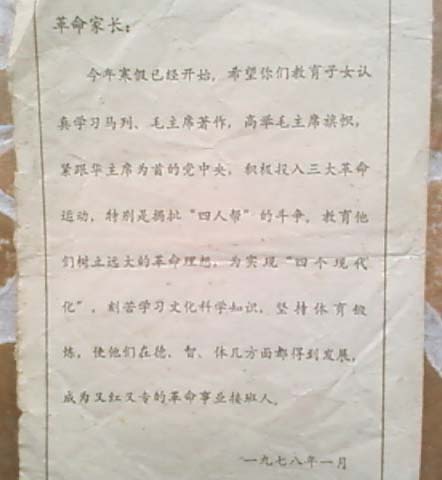 革命家长：
今年寒假已经开始，希望你们教育子女认
真学习马列、毛主席著作，高举毛主席旗帜，
紧跟华主席为首的党中央，积极投入三大革命
运动，特别是揭批“四人帮”的斗争，教育他
们树立远大的革命理想，为实现“四个现代
化”，刻苦学习文化科学知识，坚持体育锻
炼，使他们在德、智、体几方面都得到发展，
成为又红又专的革命事业接班人。
一九七八年一月